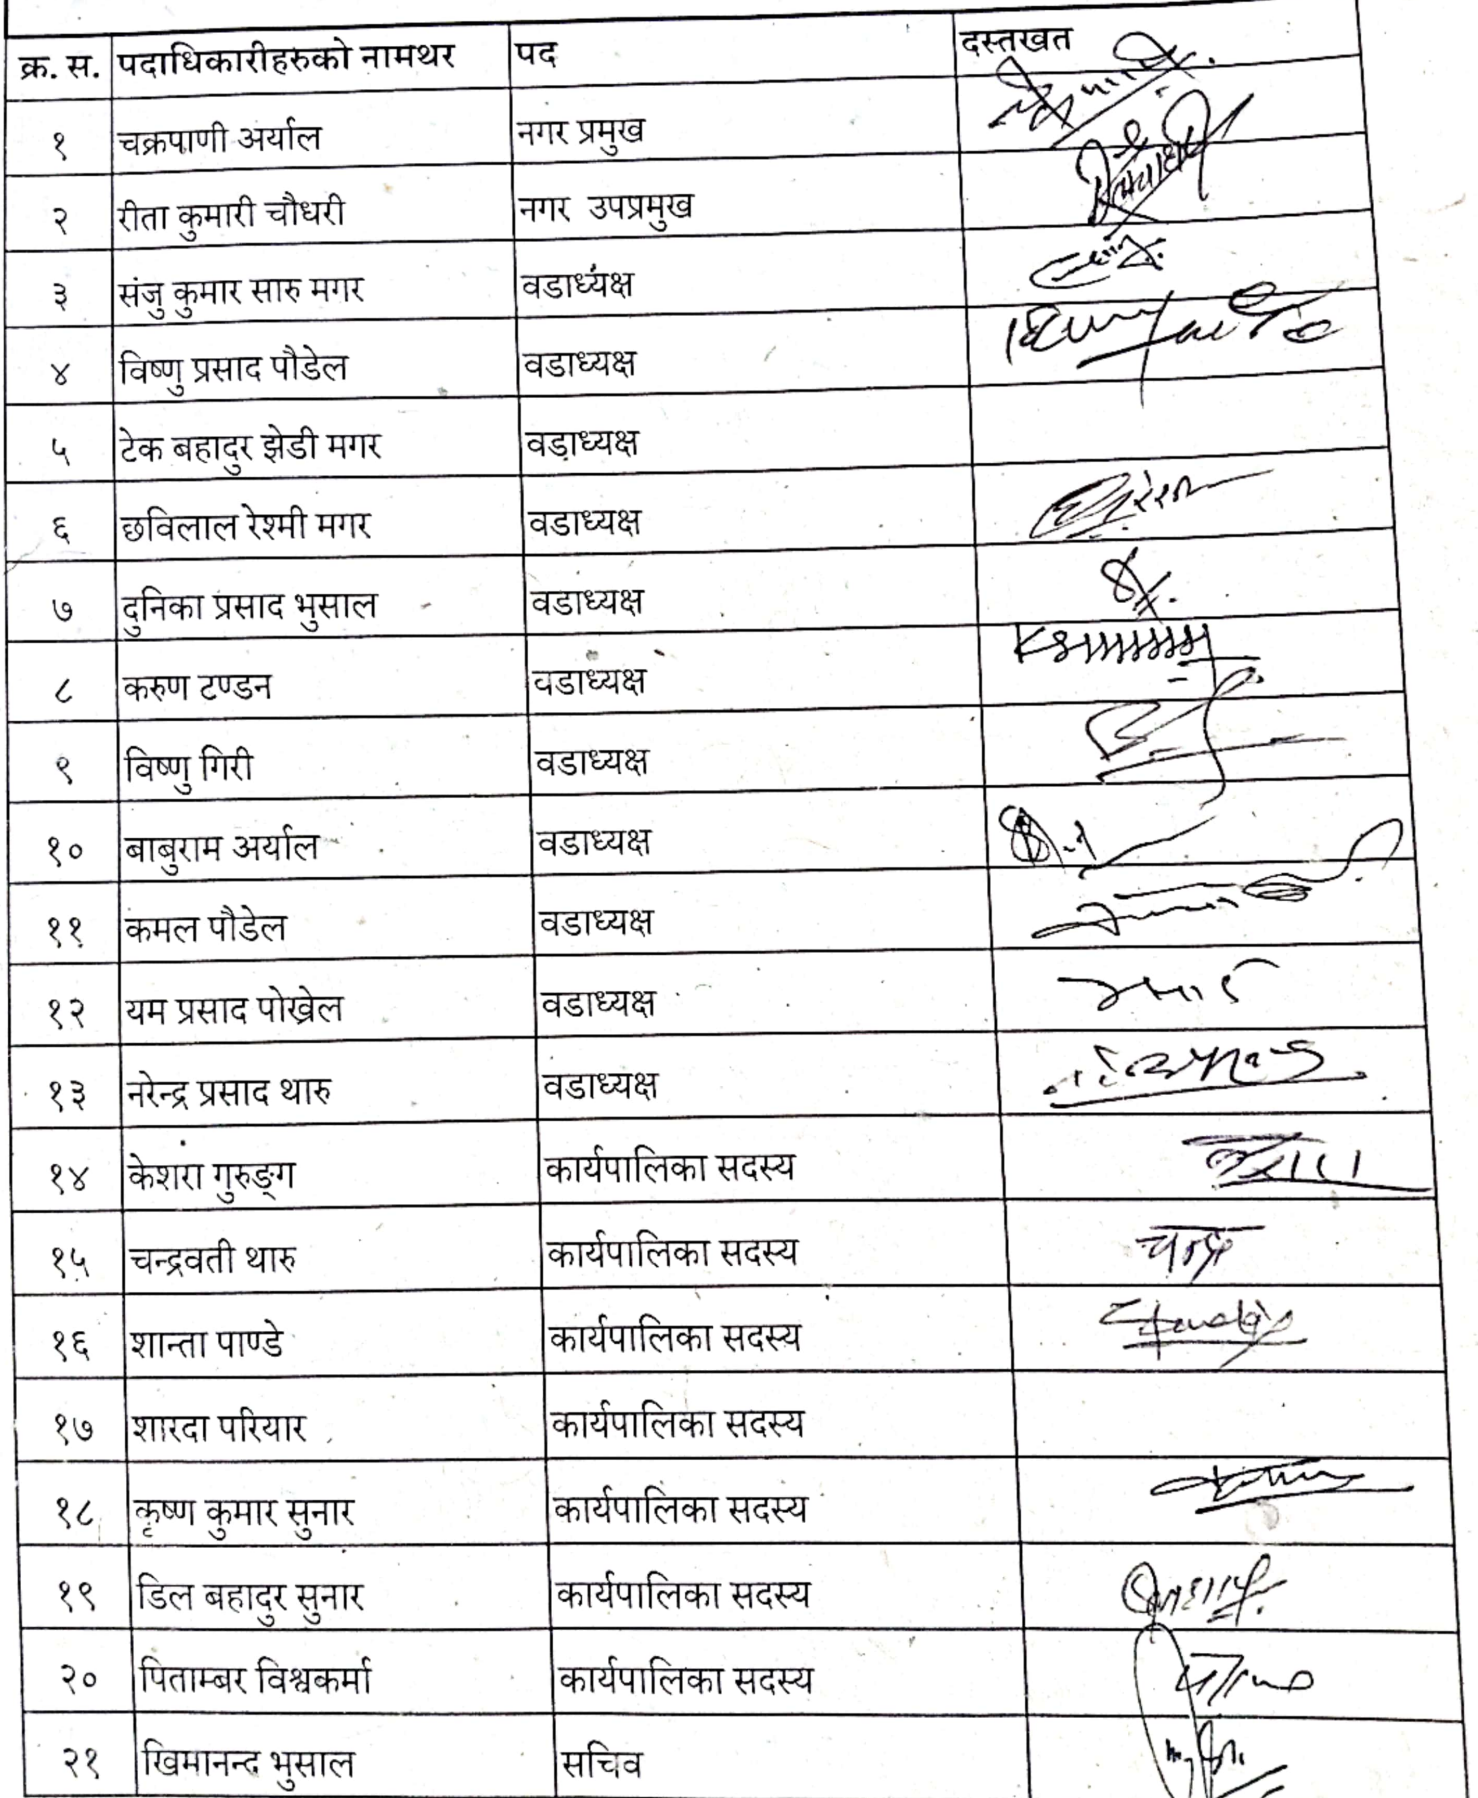 क्र. स. पदाधिकारीहरुको नामथर पद दस्तखत
१ चक्रपाणी अर्याल नगर प्रमुख
२ रीता कुमारी चौधरी नगर उपप्रमुख
३ संजु कुमार सारु मगर वडाध्यक्ष
४ विष्णु प्रसाद पौडेल वडाध्यक्ष
५ टेक बहादुर झेडी मगर वडाध्यक्ष
६ छविलाल रेश्मी मगर वडाध्यक्ष
७ दुनिका प्रसाद भुसाल वडाध्यक्ष
८ करुण टण्डन वडाध्यक्ष
९ विष्णु गिरी वडाध्यक्ष
१० बाबुराम अर्याल वडाध्यक्ष
११ कमल पौडेल वडाध्यक्ष
१२ यम प्रसाद पोख्रेल वडाध्यक्ष
१३ नरेन्द्र प्रसाद थारु वडाध्यक्ष
१४ केशरा गुरुङ्ग कार्यपालिका सदस्य
१५ चन्द्रवती थारु कार्यपालिका सदस्य चन्द्र
१६ शान्ता पाण्डे कार्यपालिका सदस्य
१७ शारदा परियार कार्यपालिका सदस्य
१८ कृष्ण कुमार सुनार कार्यपालिका सदस्य
१९ डिल बहादुर सुनार कार्यपालिका सदस्य
२० पिताम्बर विश्वकर्मा कार्यपालिका सदस्य
२१ खिमानन्द भुसाल सचिव